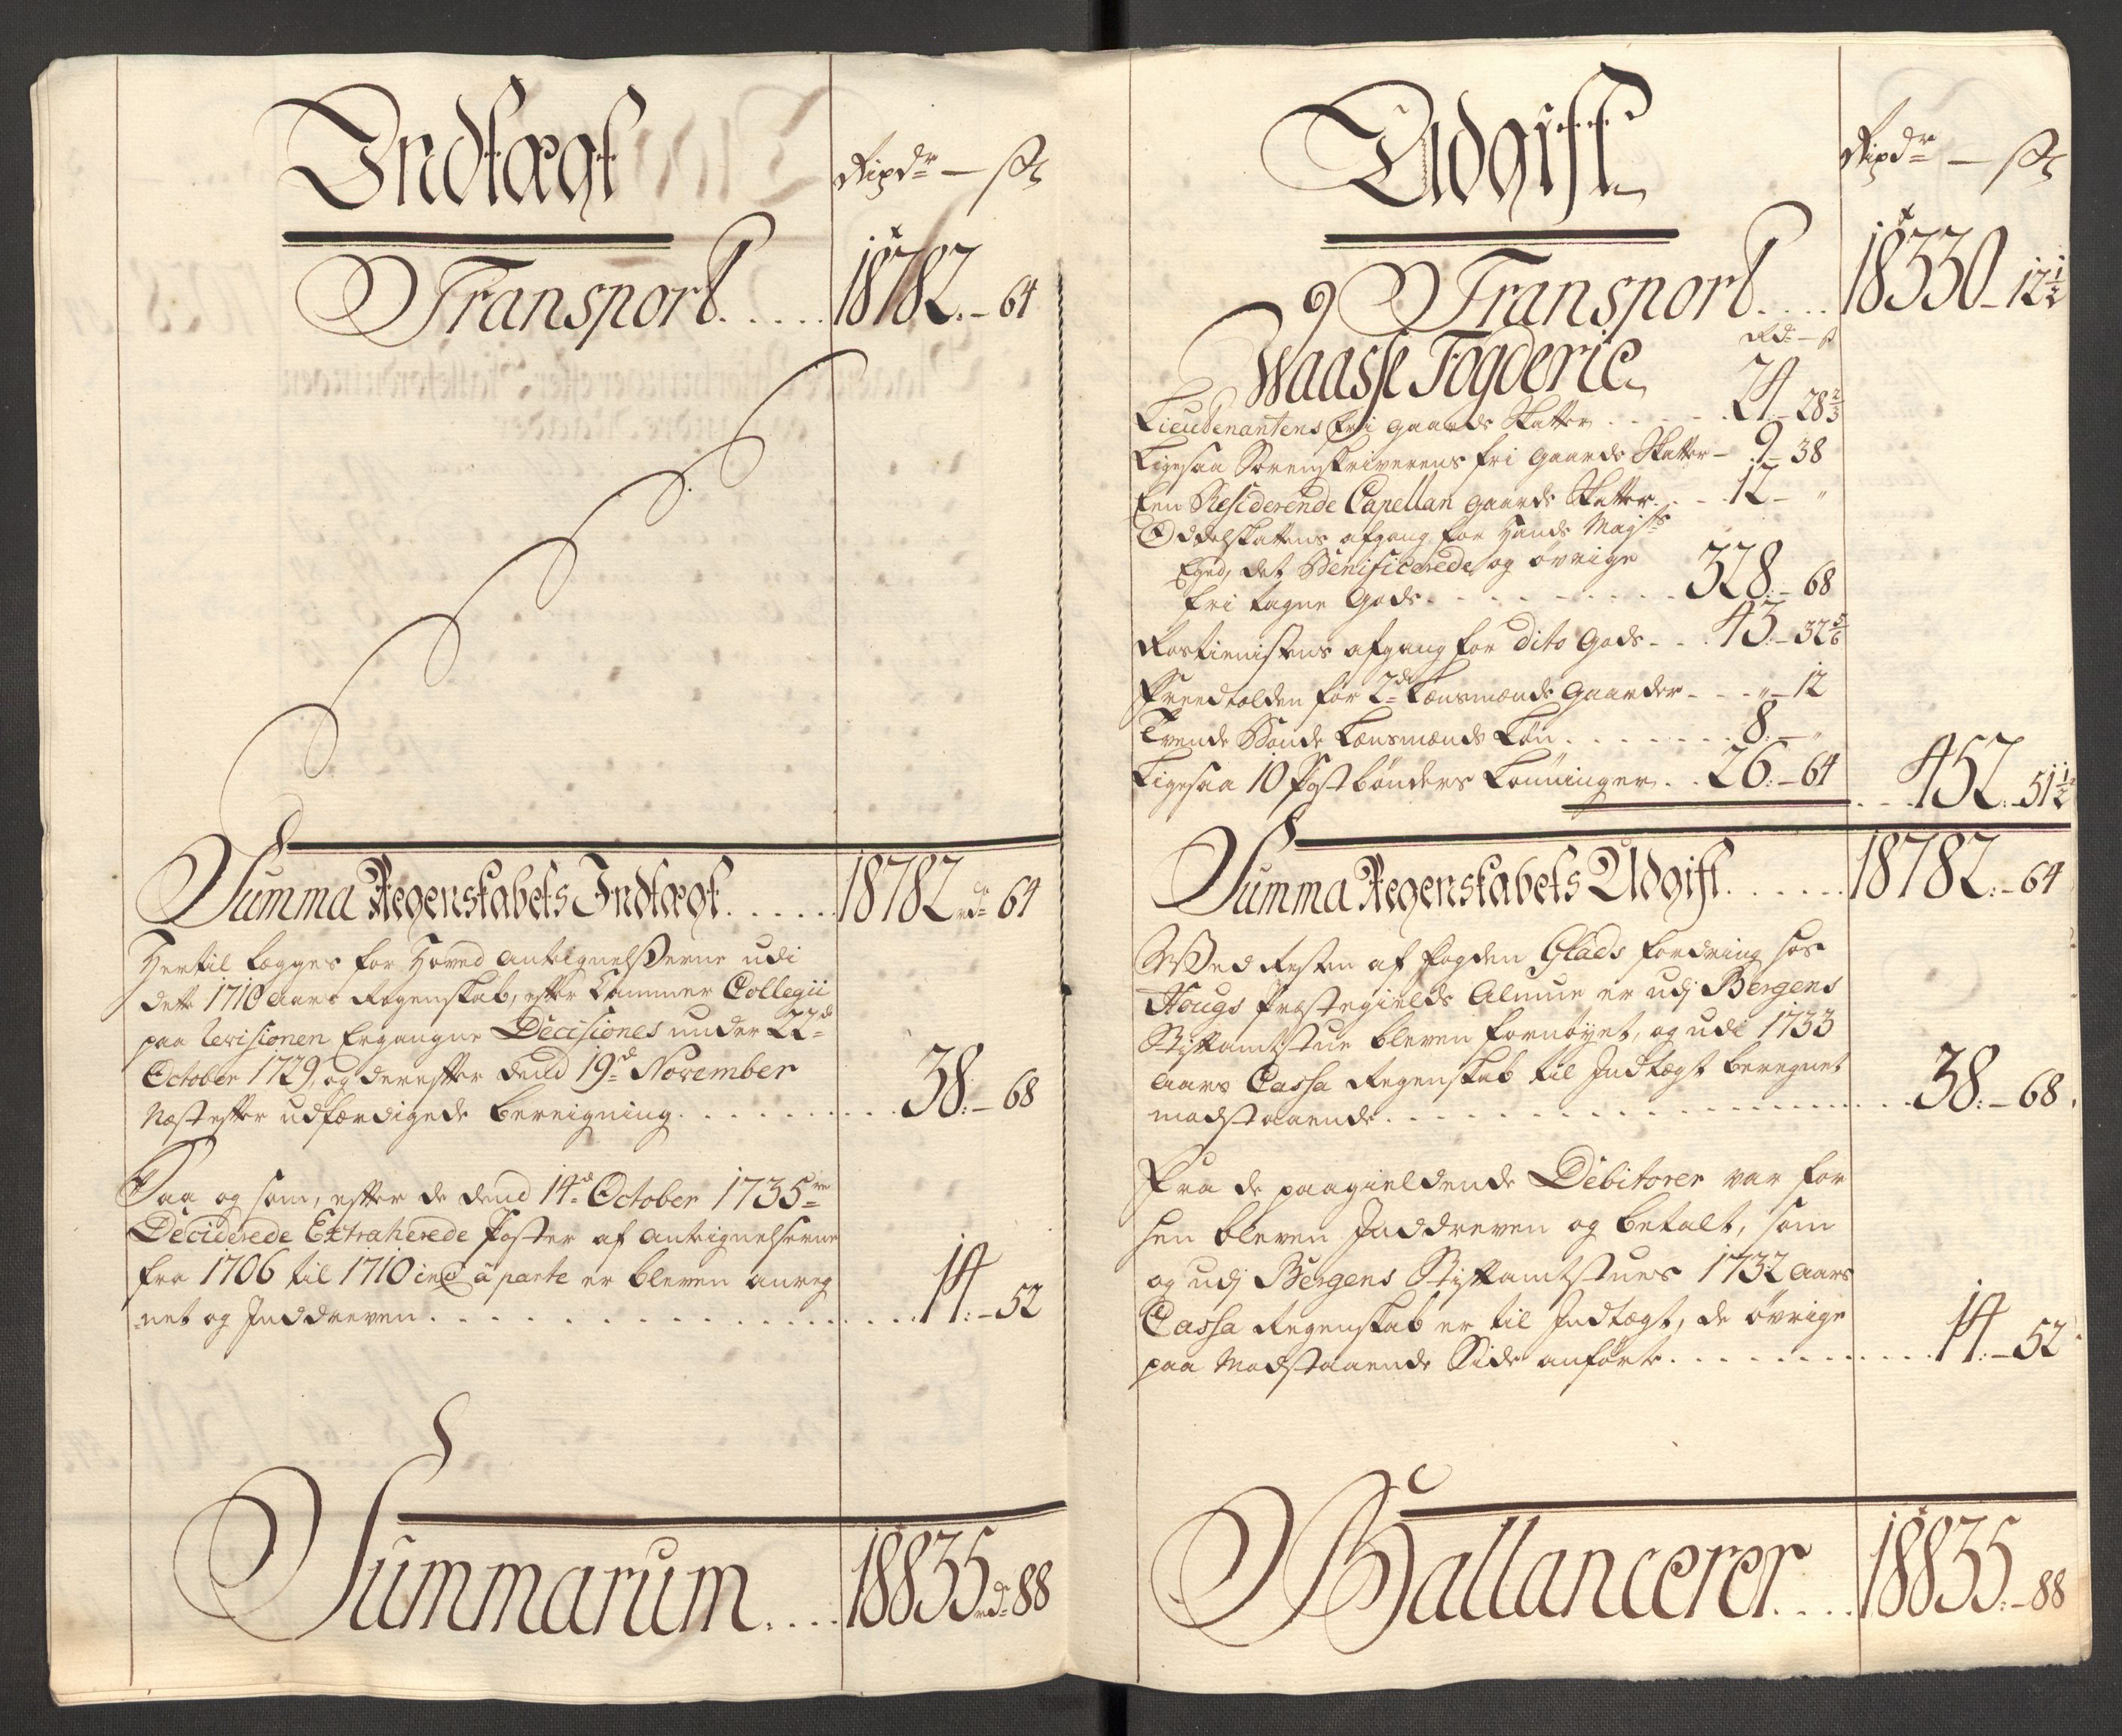 Indtægt
Ripdr — ß
Transport..... 18782.–64
Summa Regenskabets Indtægt...... 18782 rd 64
Hertil legges for Hoved antegnelßerne udi
dette 1710 aars Regenskab, efter Cammer Collegii
paa Revisionen Ergangne Decisiones under 22d
October 1729, og derefter dend 19d November
Næst efter udfærdigede bereigning......... 38:–68
Saa og som, efter de dend 14d October 1735re
Deciderede Extraherede Poster af antegnelserne
fra 1706 til 1710 incl à parte er bleven anreg
-net og Inddreven................ 14:–52
Summarum.... 18835 rd 88
Udgift
Ripdr — ß
Transport.... 18330–12½
Rdr – ß
Waasse Fogderie
Lieutenantens fri gaards Skatter..... 24–28⅔
Ligesaa Sorenskriverens fri gaards Skatter– 9–38
Een Residerende Capellan gaards Skatter... 12–"
Oddelskattens afgang for Hands Mayts
Eget, det Benificerede og övrige
fri tagne Gods......... 328:–68
Rostienistens afgang for dito Gods... 43.–32⅚
for 2de Lensmænds Gaarder... "–12
Tvende Bonde Lensmænds Løn....... 8.–"
Ligesaa 10 Postbönders Lønninger.. 26:–64 ... 452:51½
Summa Regenskabets Udgift...... 18782:–64
Wed Resten af Fogden Glads fordring hos
Hougs Præstegields Almue er udj Bergens
Stiftamtstue bleven fornöyet, og udi 1733
aars Cassa Regenskab til Indtægt beregnet
modstaaende................. 38:–68.
Fra de paagieldende Debitorer var for
hen bleven Inddreven og betalt, som
og udj Bergens Stiftamtstues 1732 aars
Cassa Regenskab er til Indtægt, de övrige
paa Modstaaende Side anförte............ 14:–52
Ballancerer.... 18835:–88